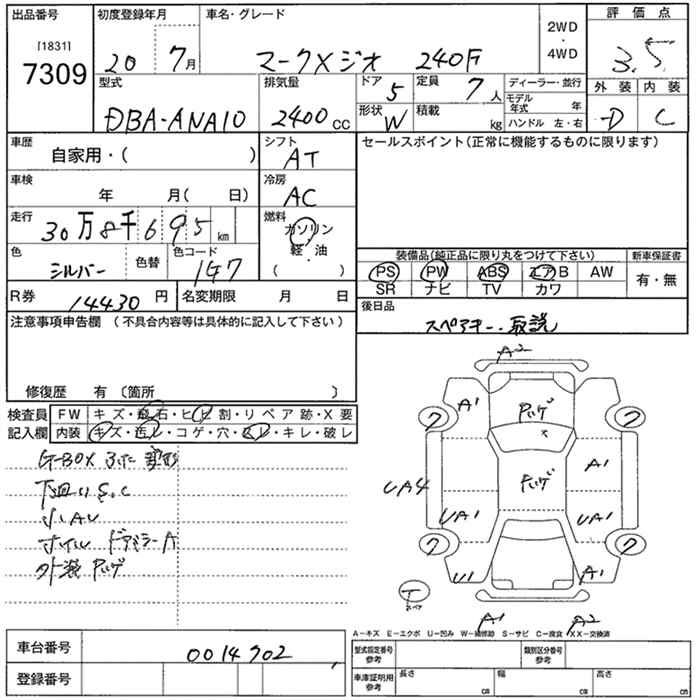 出品番号
[1831]
7309
初度登録年月
20 7月
車名・グレード
マークXジオ 240F
2WD
・
4WD
評価点
3.5
外装 内装
D C
型式
DBA-ANA10
排気量
2400cc
ドア
5
形状
W
定員
7人
積載
kg
ディーラー・並行
モデル年式 年
ハンドル 左・右
車歴
自家用・( )
シフト
AT
車検
年 月( 日)
冷房
AC
走行
30万8千695km
燃料
ガソリン
軽・油
( )
色
シルバー
色替
色コード
1G7
R券 14430円
名変期限 月 日
セールスポイント(正常に機能するものに限ります)
装備品(純正品に限り丸をつけて下さい)
PS PW ABS エアB AW
SR ナビ TV カワ
新車保証書
有・無
後日品
スペアキー・取説
注意事項申告欄 (不具合内容等は具体的に記入して下さい)
修復歴 有 〔箇所 〕
検査員
記入欄
FW キズ・飛石・ヒビ割・リペア跡・X要
内装 キズ・汚レ・コゲ・穴・スレ・キレ・破レ
G-BOX ふた 変形
下廻りS.C
小AU
ホイル ドアミラーA
外装
A2
A1
ワ
ワ
A1
UA4
UA1
UA1
ワ
ワ
U1
A1
T
A1 A2
A-キズ E-エクボ U-凹み W-補修跡 S-サビ C-腐食 XX-交換済
車台番号 0014702
登録番号
型式指定番号
参考
類別区分番号
参考
車庫証明用
参考
長さ cm
幅 cm
高さ cm